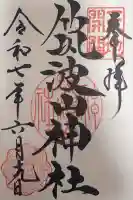 奉拝
筑波山神社
令和七年六月九日